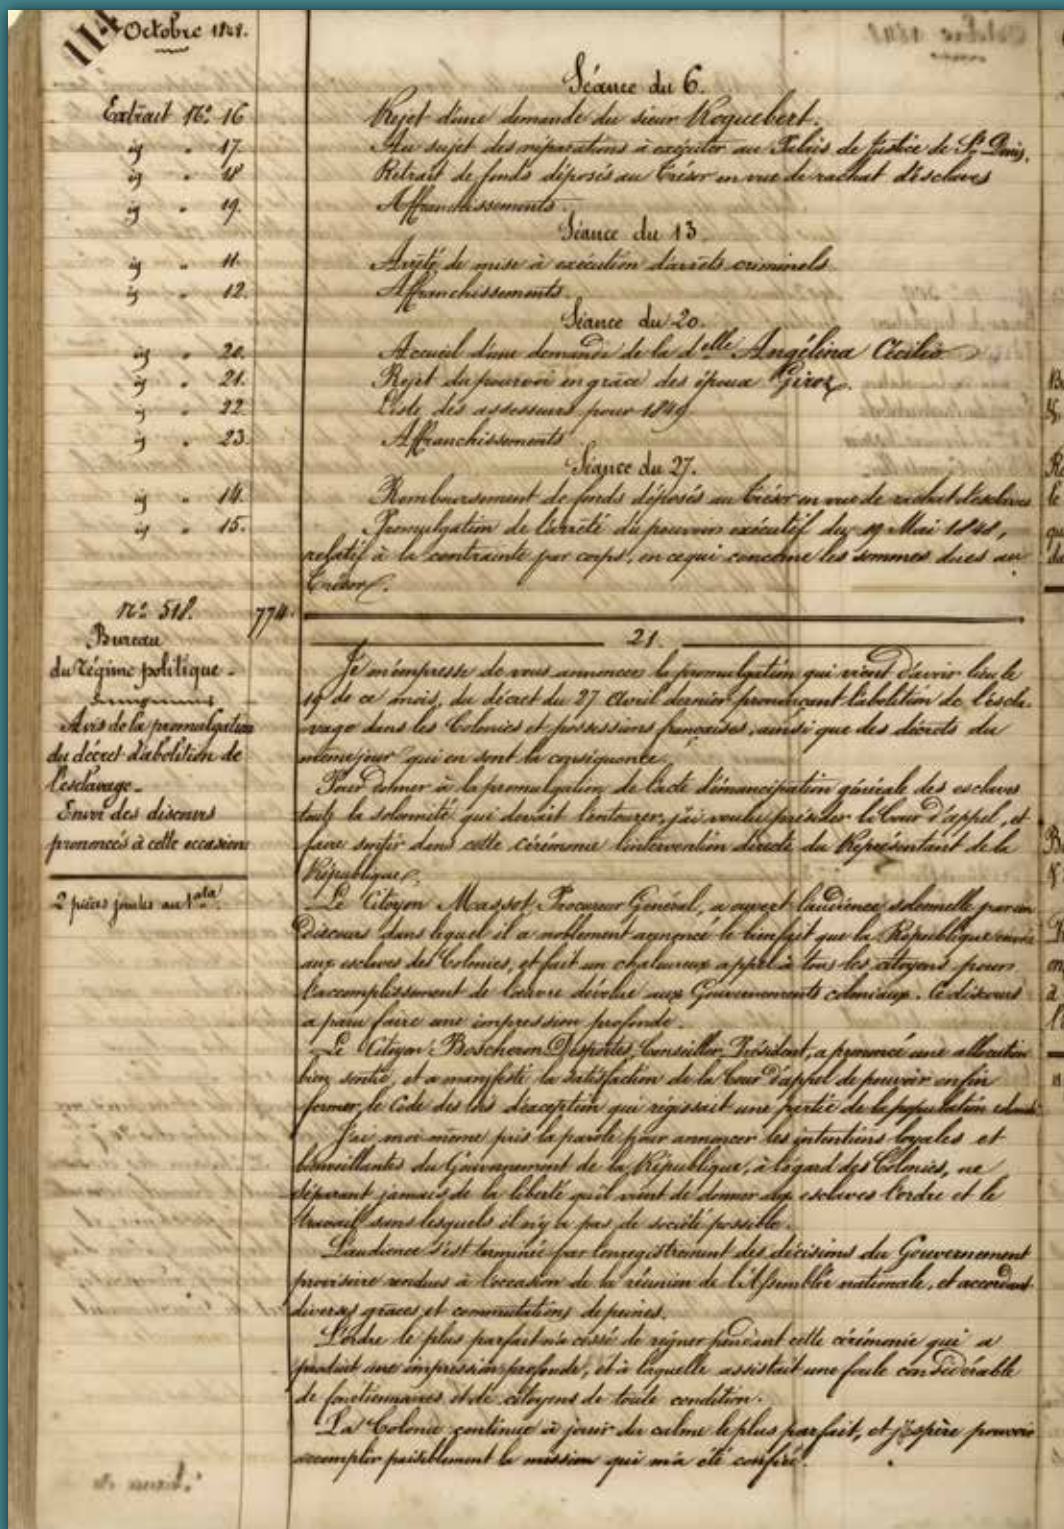 114
Octobre 1848.
Séance du 6.
Extrait N° 16 Rejet d'une demande du sieur Roquebert.
id " 17. Au sujet des réparations à exécuter au Palais de Justice de St Denis.
id " 18 Retrait de fonds déposés au Trésor en vue de rachat d'esclaves
id " 19. Affranchissements.
Séance du 13.
id " 11. Arrêté de mise à exécution d'arrêts criminels
id " 12. Affranchissements.
Séance du 20.
id " 20. Accueil d'une demande de la delle Angélina Cécilia
id " 21. Rejet du pourvoi en grâce des époux
id " 22. Liste des assesseurs pour 1849
id " 23. Affranchissements
Séance du 27.
id " 14. Remboursement de fonds déposés au Trésor en vue de rachat d'esclaves
id " 15. Promulgation de l'arrêté du pouvoir exécutif du 19 Mai 1848,
relatif à la contrainte par corps, en ce qui concerne les sommes dues au
Trésor.
N° 518. 774.
Bureau
du régime politique.
Avis de la promulgation
du décret d'abolition de
l'esclavage.
Envoi des discours
prononcés à cette occasion
2 pièces jointes au 1ata.
21.
Je m'empresse de vous annoncer la promulgation qui vient d'avoir lieu le
19 de ce mois, du décret du 27 Avril dernier prononçant l'abolition de l'escla-
vage dans les Colonies et possessions françaises, ainsi que des décrets du
même jour qui en sont la conséquence.
Pour donner à la promulgation de l'acte d'émancipation générale des esclaves
toute la solennité qui devait l'entourer, j'ai voulu présider la Cour d'appel, et
faire sentir dans cette cérémonie l'intervention directe du Représentant de la
République.
Le Citoyen Massot, Procureur Général, a ouvert l'audience solennelle par un
discours dans lequel il a noblement annoncé le bienfait que la République envoie
aux esclaves des Colonies, et fait un chaleureux appel à tous les citoyens pour
l'accomplissement de l'œuvre dévolue aux Gouvernements coloniaux. Ce discours
a paru faire une impression profonde.
Le Citoyen Boscheron Desportes, Conseiller, Président, a prononcé une allocution
bien sentie, et a manifesté la satisfaction de la Cour d'appel de pouvoir enfin
fermer le Code des lois d'exception qui régissait une partie de la population
J'ai moi même pris la parole pour annoncer les intentions loyales et
bienveillantes du Gouvernement de la République, à l'égard des Colonies, ne
séparant jamais de la liberté qu'il vient de donner aux esclaves l'ordre et le
travail sans lesquels il n'y a pas de société possible.
L'audience s'est terminée par l'enregistrement des décisions du Gouvernement
provisoire rendues à l'occasion de la réunion de l'Assemblée nationale, et accordant
diverses graces et commutations de peines.
L'ordre le plus parfait n'a cessé de régner pendant cette cérémonie qui a
produit une impression profonde, et à laquelle assistait une foule considérable
de fonctionnaires et de citoyens de toute condition.
La Colonie continue à jouir du calme le plus parfait, et j'espère pouvoir
accomplir paisiblement la mission qui m'a été confiée.